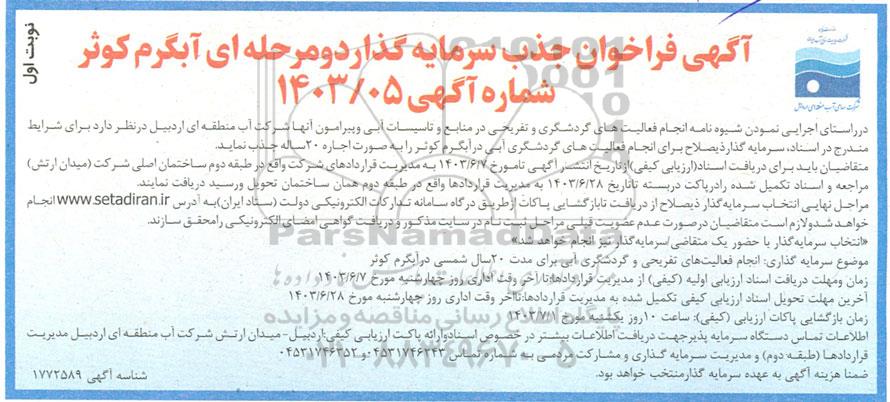 نوبت اول
آگهی فراخوان جذب سرمایه گذار دومرحله ای آبگرم کوثر
شماره آگهی ۱۴۰۳/۰۵
شرکت سهامی آب منطقه ای اردبیل
درراستای اجرایی نمودن شیوه نامه انجام فعالیت های گردشگری و تفریحی در منابع و تاسیسات آبی وپیرامون آنها شرکت آب منطقه ای اردبیل درنظر دارد برای شرایط
مندرج در اسناد، سرمایه گذارذیصلاح برای انجام فعالیت های گردشگری آبی درآبگرم کوثر را به صورت اجاره ۲۰ساله جذب نماید.
متقاضیان باید برای دریافت اسناد(ارزیابی کیفی)ازتاریخ انتشار آگهی تامورخ ۱۴۰۳/۶/۷ به مدیریت قراردادهای شرکت واقع در طبقه دوم ساختمان اصلی شرکت (میدان ارتش)
مراجعه و اسناد تکمیل شده رادرپاکت دربسته تاتاریخ ۱۴۰۳/۶/۲۸ به مدیریت قراردادها واقع در طبقه دوم همان ساختمان تحویل ورسید دریافت نمایند.
مراحل نهایی انتخاب سرمایه گذار ذیصلاح از دریافت تابازگشایی پاکات ازطریق درگاه سامانه تدارکات الکترونیکی دولت (ستاد ایران)به آدرس www.setadiran.ir انجام
خواهد شدولازم است متقاضیان درصورت عدم عضویت قبلی مراحل ثبت نام در سایت مذکور و دریافت گواهی امضای الکترونیکی رامحقق سازند.
«انتخاب سرمایه‌گذار با حضور یک متقاضی/سرمایه‌گذار نیز انجام خواهد شد»
موضوع سرمایه گذاری: انجام فعالیت‌های تفریحی و گردشگری آبی برای مدت ۲۰سال شمسی درآبگرم کوثر
زمان ومهلت دریافت اسناد ارزیابی اولیه (کیفی) از مدیریت قراردادها:تا آخر وقت اداری روز چهارشنبه مورخ ۱۴۰۳/۶/۷
آخرین مهلت تحویل اسناد ارزیابی کیفی تکمیل شده به مدیریت قراردادها:تاآخر وقت اداری روز چهارشنبه مورخ ۱۴۰۳/۶/۲۸
زمان بازگشایی پاکات ارزیابی (کیفی): ساعت ۱۰روز یکشنبه مورخ ۱۴۰۳/۷/۱
اطلاعات تماس دستگاه سرمایه پذیرجهت دریافت اطلاعات بیشتر در خصوص اسنادوارائه پاکت ارزیابی کیفی:اردبیل-میدان ارتش شرکت آب منطقه ای اردبیل مدیریت
قراردادها (طبقه دوم) و مدیریت سرمایه گذاری و مشارکت مردمی به شماره تماس ۰۴۵۳۱۷۴۶۳۴۳و ۰۴۵۳۱۷۴۶۳۵۲
ضمنا هزینه آگهی به عهده سرمایه گذارمنتخب خواهد بود.
شناسه آگهی ۱۷۷۲۵۸۹
ParsNamadData
۰۲۱-۸۸۳۴۹۶۷۰-۵